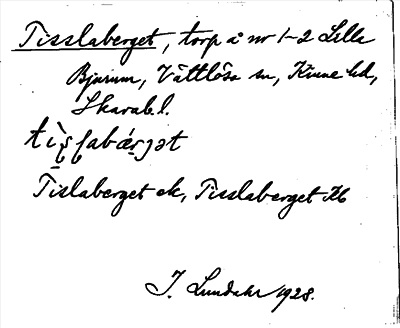 Tisslaberget, torp å nr 1-2 Lilla
Bjurum, Vättlösa sn, Kinne hd,
Skarab. l.
Tislaberget ek, Tisslaberget Kb
J. Lundahl 1928.